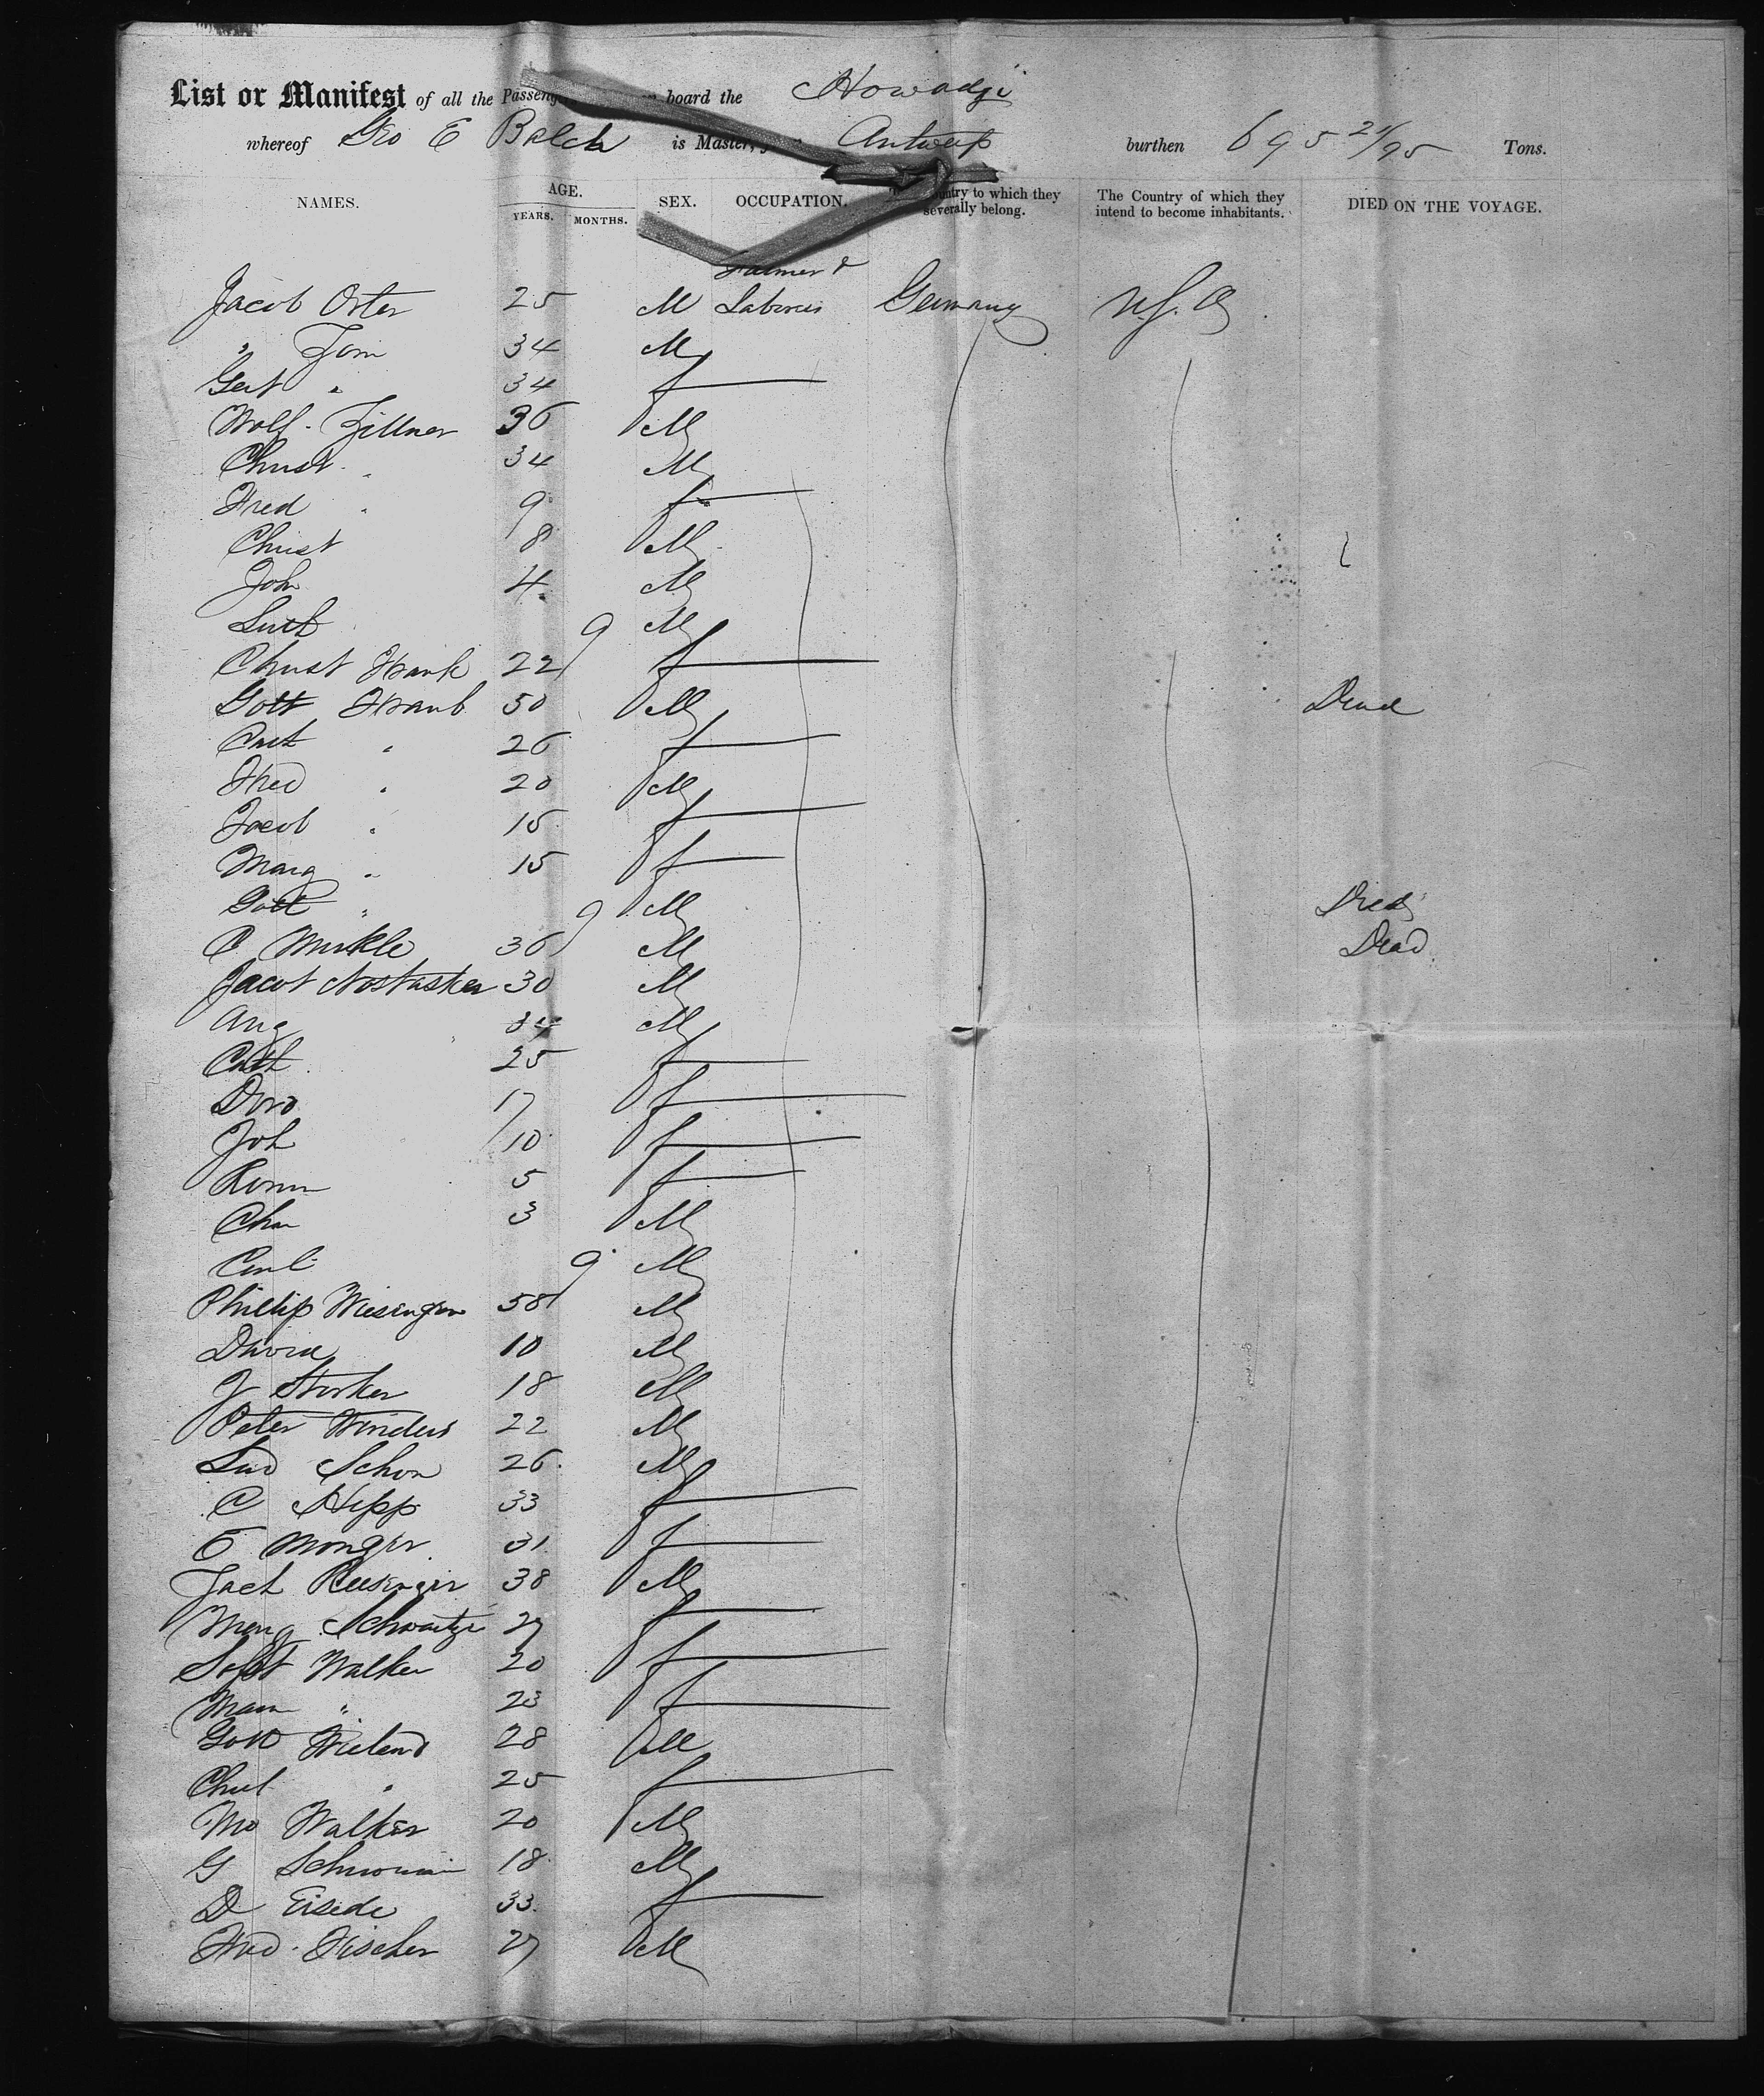 List or Manifest of all the Passeng board the Howadji
whereof Geo E Balch is Master, Antwerp burthen 695 21/95 Tons.
NAMES. AGE. YEARS. MONTHS. SEX. OCCUPATION. ntry to which they severally belong. The Country of which they intend to become inhabitants. DIED ON THE VOYAGE.
Farmer &
Jacob Oster 25 M Laborers Germany U.S.A
" 34 M
Gert " 34 f
Wolf. Zillner 36 M
Christ. " 34 M
Fred " 9 f
Christ 8 M
Joh 4 M
9 M
Christ Frank 22 f
Gott Straub 50 M Dead
Cath " 26 f
Fred " 20 M
Jacob " 15 f
Marg " 15 f
Gott " 9 M Died
C Murkle 36 M Dead
Jacob 30 M
Aug 34 M
Cath 25 f
Doro 17 f
Joh 10 f
5 f
Chr 3 M
9 M
Phillip 58 M
David 10 M
J Storker 18 M
Peter 22 M
Lud Schon 26 M
C Hipp 33 f
31 f
38 M
Marg 27 f
Soph Walker 20 f
" 23 f
Gott Wieland 28 M
" 25 f
Walker 20 M
G 18 M
D Eisede 33 f
Fred. Fischer 27 M